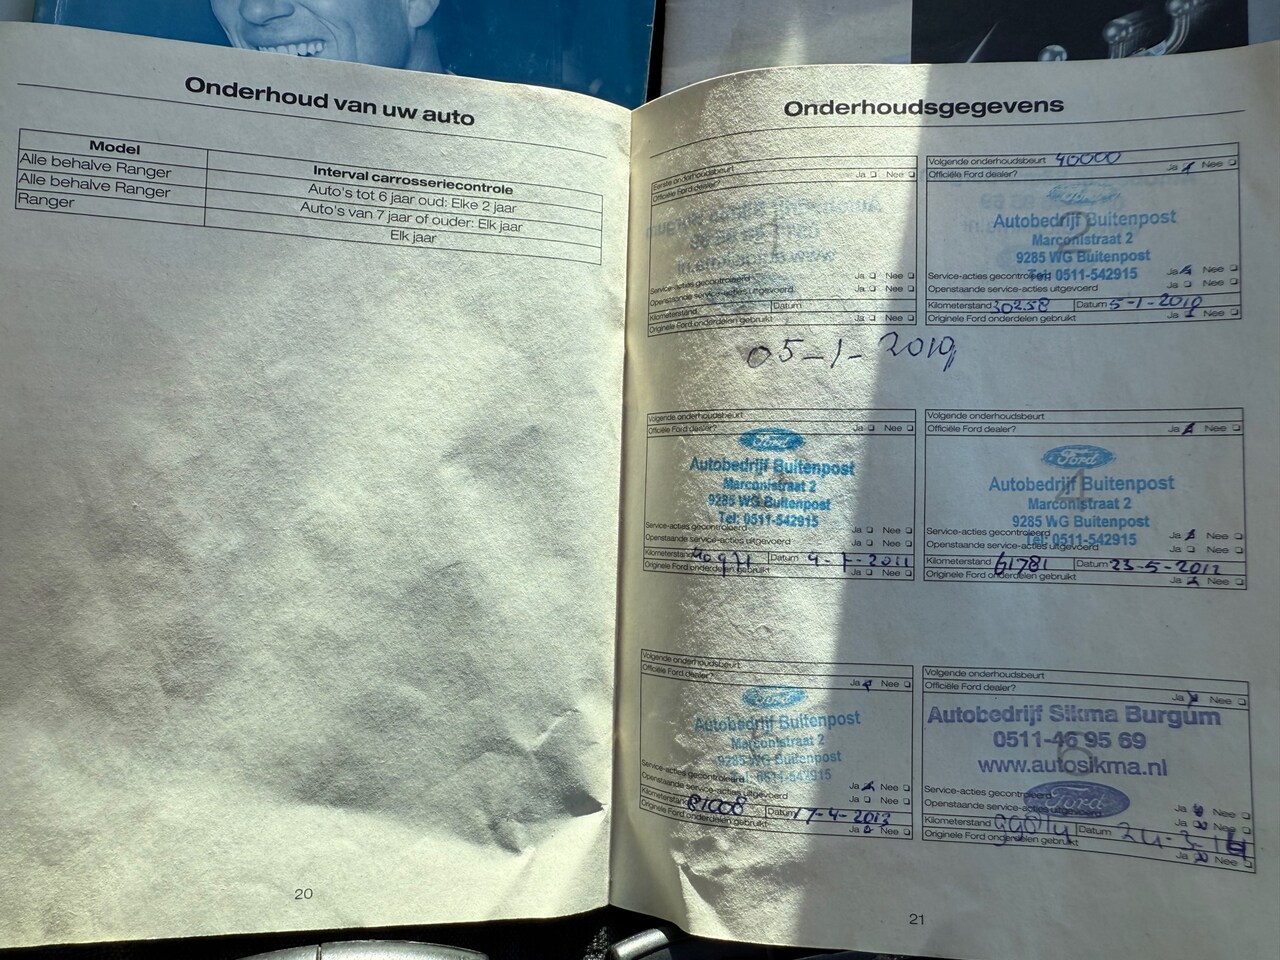 Onderhoud van uw auto
Model
Interval carrosseriecontrole
Alle behalve Ranger
Auto's tot 6 jaar oud: Elke 2 jaar
Alle behalve Ranger
Auto's van 7 jaar of ouder: Elk jaar
Ranger
Elk jaar
20
Onderhoudsgegevens
Eerste onderhoudsbeurt
Officiële Ford dealer? Ja Nee
1
Service-acties gecontroleerd Ja Nee
Openstaande service-acties uitgevoerd Ja Nee
Kilometerstand Datum
Originele Ford onderdelen gebruikt Ja Nee
05-1-2010
Volgende onderhoudsbeurt 40000
Officiële Ford dealer? Ja Nee
2
Autobedrijf Buitenpost
Marconistraat 2
9285 WG Buitenpost
Tel: 0511-542915
Service-acties gecontroleerd Ja Nee
Openstaande service-acties uitgevoerd Ja Nee
Kilometerstand 30258 Datum 5-1-2010
Originele Ford onderdelen gebruikt Ja Nee
Volgende onderhoudsbeurt
Officiële Ford dealer? Ja Nee
Ford
Autobedrijf Buitenpost
Marconistraat 2
9285 WG Buitenpost
Tel: 0511-542915
Service-acties gecontroleerd Ja Nee
Openstaande service-acties uitgevoerd Ja Nee
Kilometerstand Datum 2011
Originele Ford onderdelen gebruikt Ja Nee
Volgende onderhoudsbeurt
Officiële Ford dealer? Ja Nee
Ford
4
Autobedrijf Buitenpost
Marconistraat 2
9285 WG Buitenpost
Tel: 0511-542915
Service-acties gecontroleerd Ja Nee
Openstaande service-acties uitgevoerd Ja Nee
Kilometerstand 61781 Datum 23-5-2012
Originele Ford onderdelen gebruikt Ja Nee
Volgende onderhoudsbeurt
Officiële Ford dealer? Ja Nee
Ford
Autobedrijf Buitenpost
Marconistraat 2
9285 WG Buitenpost
Tel: 0511-542915
Service-acties gecontroleerd Ja Nee
Openstaande service-acties uitgevoerd Ja Nee
Kilometerstand 81008 Datum 17-4-2013
Originele Ford onderdelen gebruikt Ja Nee
Volgende onderhoudsbeurt
Officiële Ford dealer? Ja Nee
Autobedrijf Sikma Burgum
0511-46 95 69
www.autosikma.nl
6
Ford
Service-acties gecontroleerd Ja Nee
Openstaande service-acties uitgevoerd Ja Nee
Kilometerstand Datum 24-3-14
Originele Ford onderdelen gebruikt Ja Nee
21